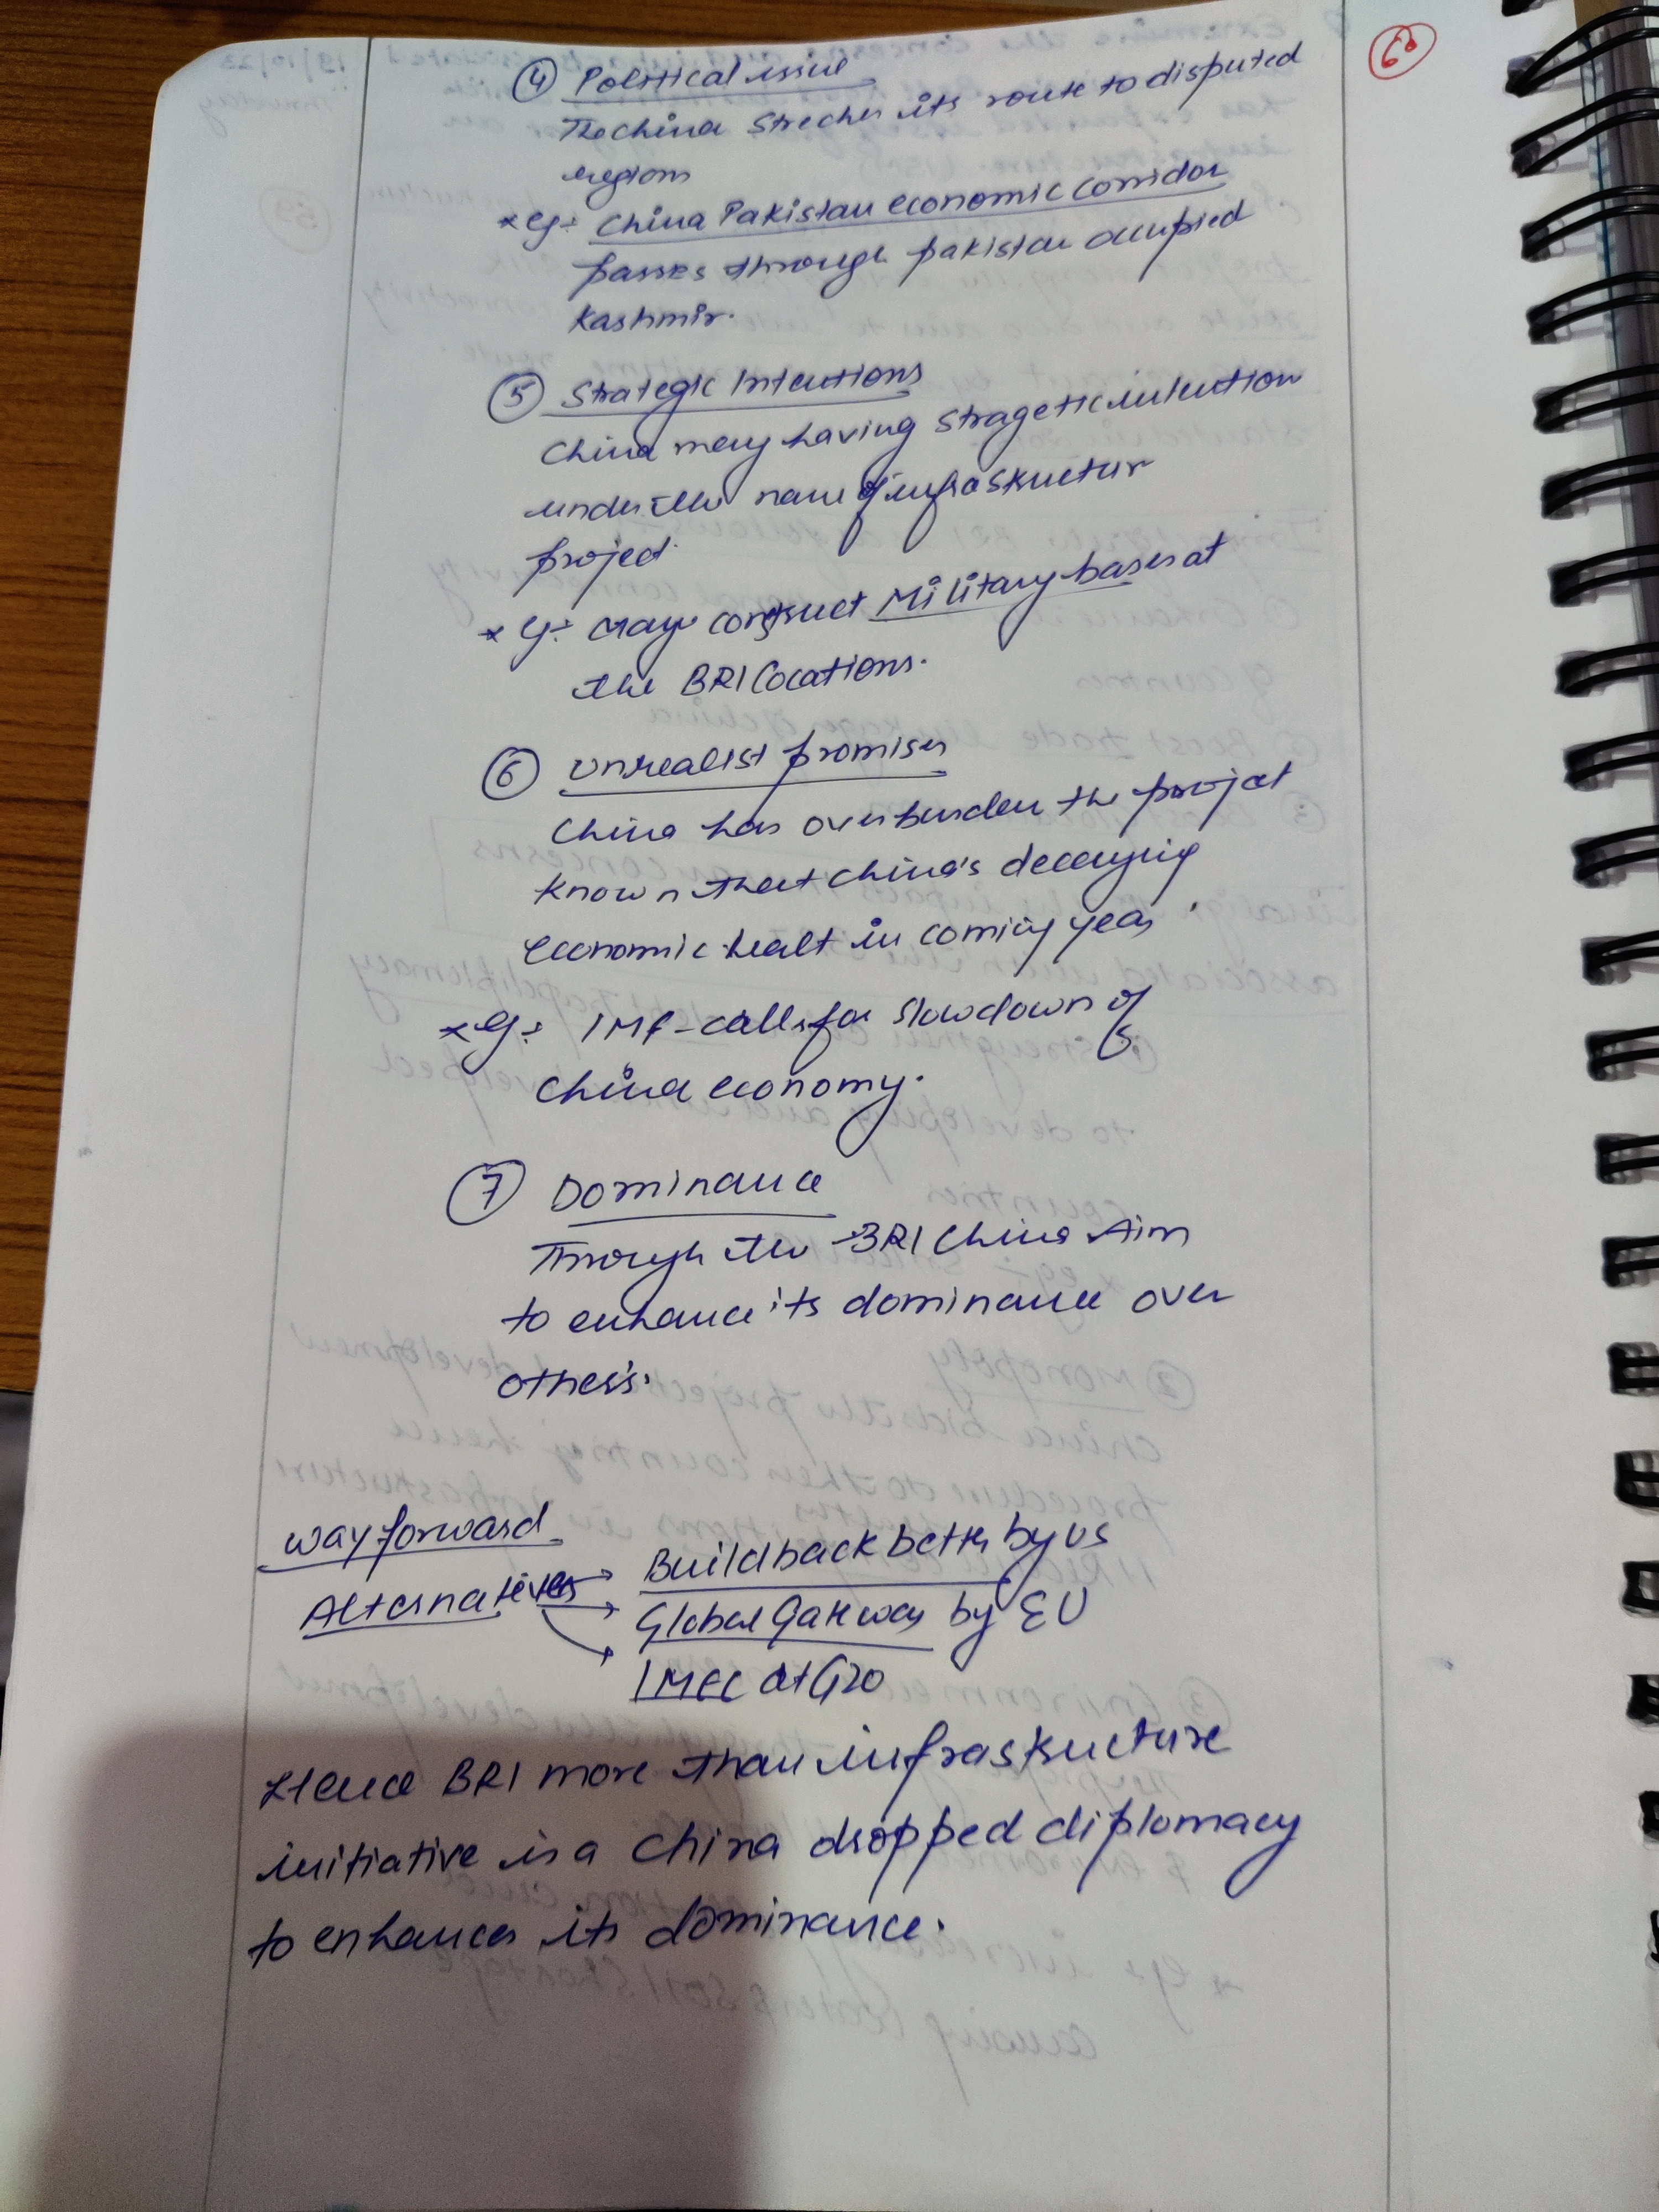 60
④ Political issue
The china Streches its route to disputed
regions
* eg:- China Pakistan economic Corridor
passes through pakistan occupied
Kashmir.
⑤ Strategic Intentions
China may having Stragetic intention
under the name of infrastructur
project.
* eg:- may construct Military bases at
the BRI locations.
⑥ Unrealist promises
China has overburden the project
known that China's decaying
economic healt in coming years.
* eg:- IMF-calls for Slowdown of
China economy.
⑦ Dominance
Through the BRI China Aim
to enhance its dominance over
others.
way forward
Alternatives → Build back better by US
→ Global Gateway by EU
→ IMEC at G20
Hence BRI more than infrastructure
initiative is a China dropped diplomacy
to enhances its dominance.